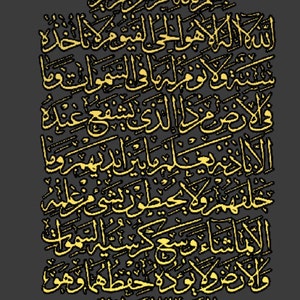 الله لا اله الا هو الحي القيوم لا تأخذه
سنة ولا نوم له ما في السموات وما
في الارض من ذا الذي يشفع عنده
الا باذنه يعلم ما بين ايديهم وما
خلفهم ولا يحيطون بشئ من علمه
الا بما شاء وسع كرسيه السموات
والارض ولا يؤده حفظهما وهو